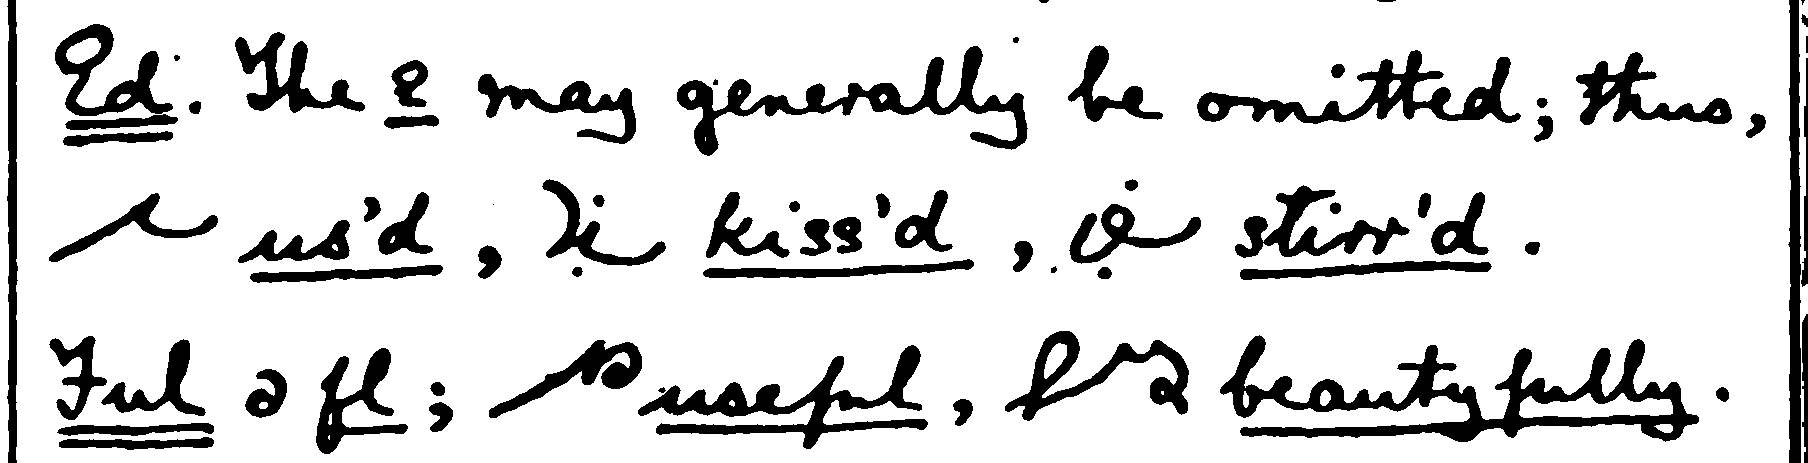 Ed. The e may generally be omitted; thus,
us'd, kiss'd, stirr'd.
Ful fl; useful, beautyfully.